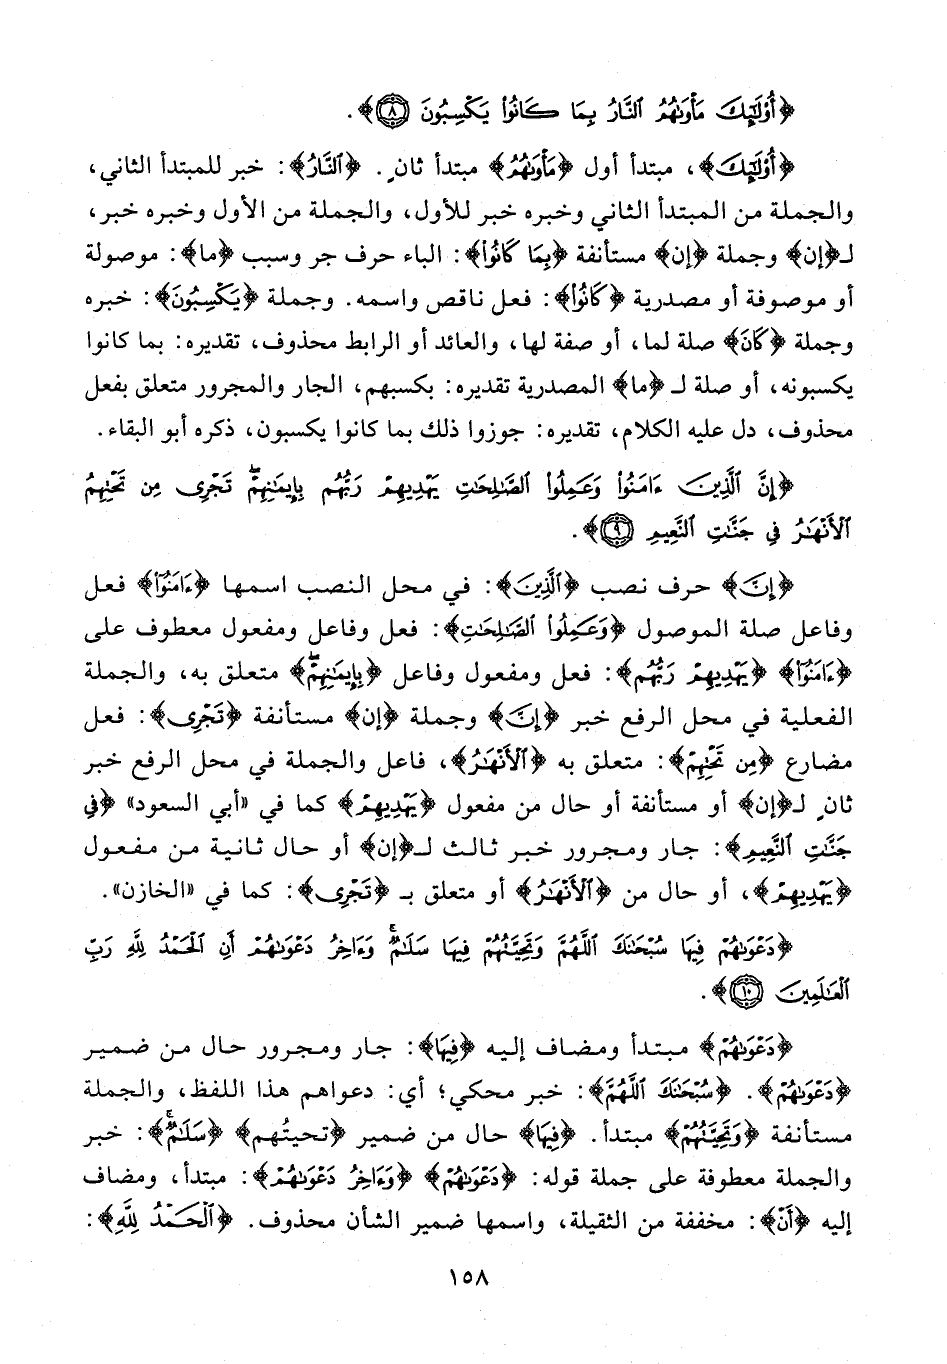 ﴿أُوْلَٰٓئِكَ مَأْوَىٰهُمُ ٱلنَّارُ بِمَا كَانُوا۟ يَكْسِبُونَ ٨﴾.
﴿أُوْلَٰٓئِكَ﴾، مبتدأ أول ﴿مَأْوَىٰهُمُ﴾ مبتدأ ثانٍ. ﴿ٱلنَّارُ﴾: خبر للمبتدأ الثاني،
والجملة من المبتدأ الثاني وخبره خبر للأول، والجملة من الأول وخبره خبر،
لـ﴿إن﴾ وجملة ﴿إن﴾ مستأنفة ﴿بِمَا كَانُوا۟﴾: الباء حرف جر وسبب ﴿ما﴾: موصولة
أو موصوفة أو مصدرية ﴿كَانُوا۟﴾: فعل ناقص واسمه. وجملة ﴿يَكْسِبُونَ﴾: خبره
وجملة ﴿كَانَ﴾ صلة لما، أو صفة لها، والعائد أو الرابط محذوف، تقديره: بما كانوا
يكسبونه، أو صلة لـ ﴿ما﴾ المصدرية تقديره: بكسبهم، الجار والمجرور متعلق بفعل
محذوف، دل عليه الكلام، تقديره: جوزوا ذلك بما كانوا يكسبون، ذكره أبو البقاء.
﴿إِنَّ ٱلَّذِينَ ءَامَنُوا۟ وَعَمِلُوا۟ ٱلصَّٰلِحَٰتِ يَهْدِيهِمْ رَبُّهُم بِإِيمَٰنِهِمْ ۖ تَجْرِى مِن تَحْتِهِمُ
ٱلْأَنْهَٰرُ فِي جَنَّٰتِ ٱلنَّعِيمِ ٩﴾.
﴿إِنَّ﴾ حرف نصب ﴿ٱلَّذِينَ﴾: في محل النصب اسمها ﴿ءَامَنُوا۟﴾ فعل
وفاعل صلة الموصول ﴿وَعَمِلُوا۟ ٱلصَّٰلِحَٰتِ﴾: فعل وفاعل ومفعول معطوف على
﴿ءَامَنُوا۟﴾ ﴿يَهْدِيهِمْ رَبُّهُم﴾: فعل ومفعول وفاعل ﴿بِإِيمَٰنِهِمْ ۖ﴾ متعلق به، والجملة
الفعلية في محل الرفع خبر ﴿إِنَّ﴾ وجملة ﴿إن﴾ مستأنفة ﴿تَجْرِى﴾: فعل
مضارع ﴿مِن تَحْتِهِمُ﴾: متعلق به ﴿ٱلْأَنْهَٰرُ﴾، فاعل والجملة في محل الرفع خبر
ثانٍ لـ﴿إن﴾ أو مستأنفة أو حال من مفعول ﴿يَهْدِيهِمْ﴾ كما في «أبي السعود» ﴿فِي
جَنَّٰتِ ٱلنَّعِيمِ﴾: جار ومجرور خبر ثالث لـ﴿إن﴾ أو حال ثانية من مفعول
﴿يَهْدِيهِمْ﴾، أو حال من ﴿ٱلْأَنْهَٰرُ﴾ أو متعلق بـ ﴿تَجْرِى﴾: كما في «الخازن».
﴿دَعْوَىٰهُمْ فِيهَا سُبْحَٰنَكَ ٱللَّهُمَّ وَتَحِيَّتُهُمْ فِيهَا سَلَٰمٌ ۚ وَءَاخِرُ دَعْوَىٰهُمْ أَنِ ٱلْحَمْدُ لِلَّهِ رَبِّ
ٱلْعَٰلَمِينَ ١٠﴾.
﴿دَعْوَىٰهُمْ﴾ مبتدأ ومضاف إليه ﴿فِيهَا﴾: جار ومجرور حال من ضمير
﴿دَعْوَىٰهُمْ﴾. ﴿سُبْحَٰنَكَ ٱللَّهُمَّ﴾: خبر محكي؛ أي: دعواهم هذا اللفظ، والجملة
مستأنفة ﴿وَتَحِيَّتُهُمْ﴾ مبتدأ. ﴿فِيهَا﴾ حال من ضمير ﴿تحيتُهم﴾ ﴿سَلَٰمٌ ۚ﴾: خبر
والجملة معطوفة على جملة قوله: ﴿دَعْوَىٰهُمْ﴾ ﴿وَءَاخِرُ دَعْوَىٰهُمْ﴾: مبتدأ، ومضاف
إليه ﴿أَنْ﴾: مخففة من الثقيلة، واسمها ضمير الشأن محذوف. ﴿ٱلْحَمْدُ لِلَّهِ﴾:
١٥٨